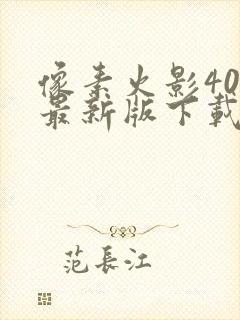 像素火影40
最新版下载
范長江